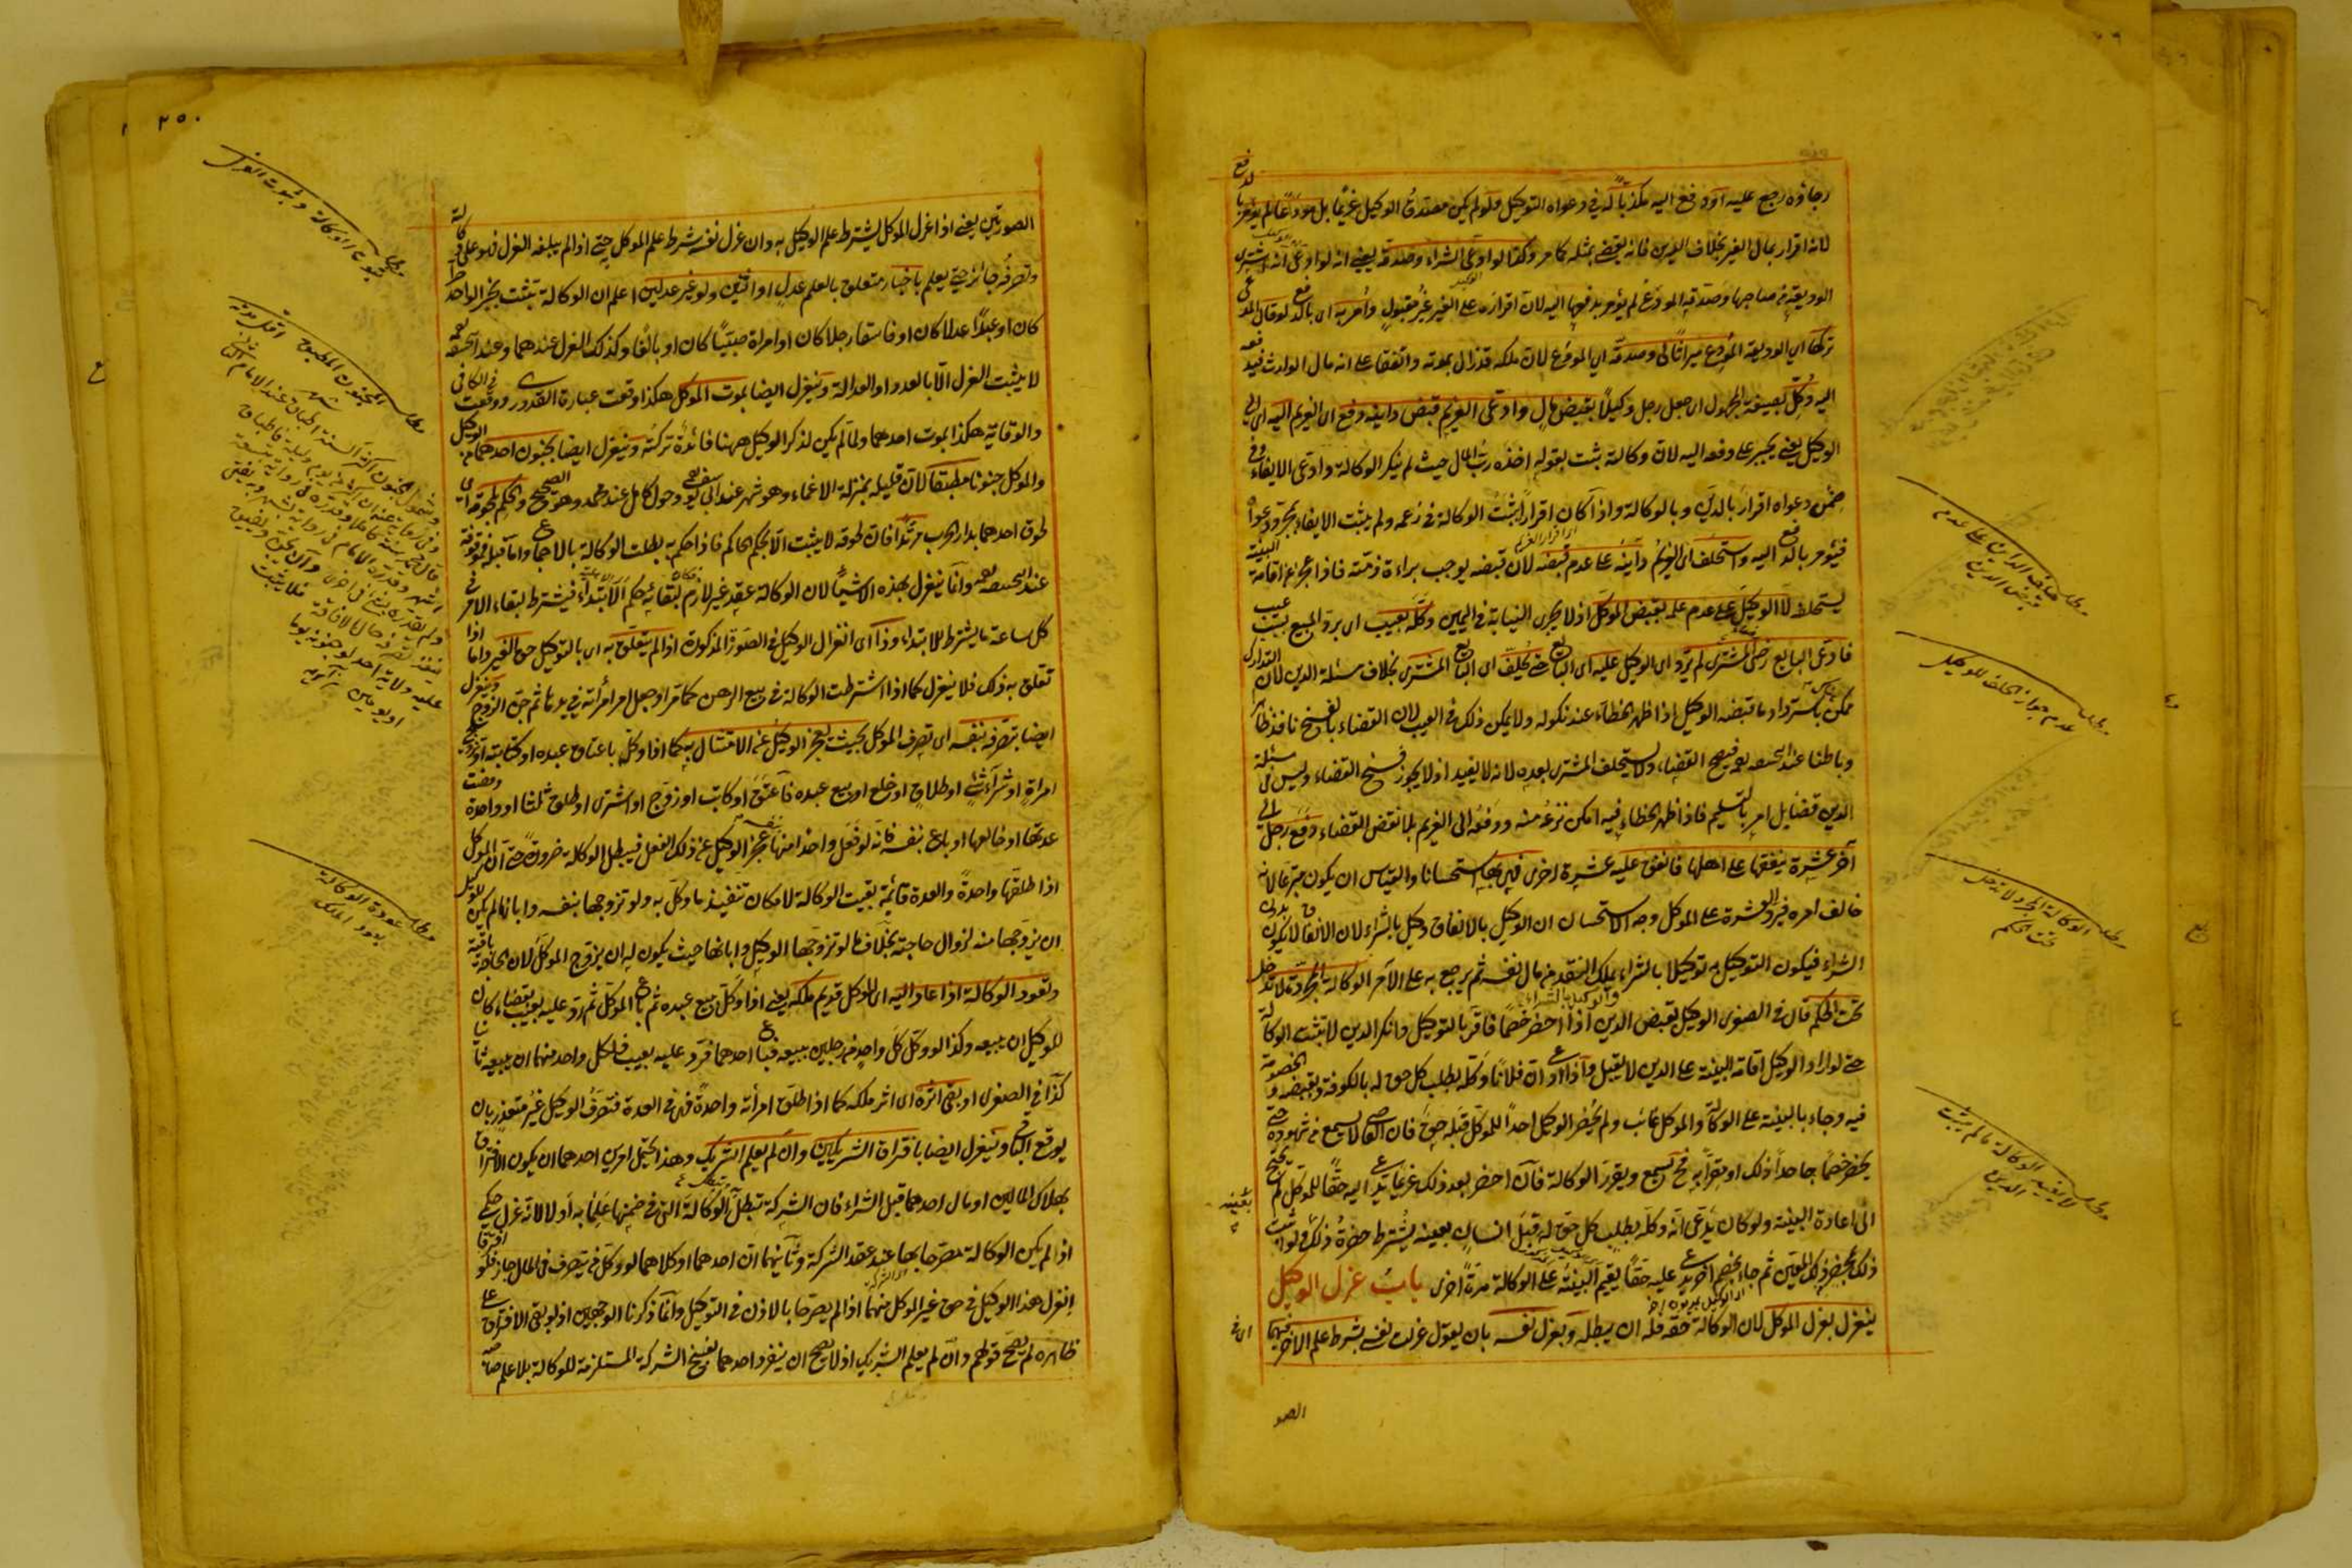 رجاؤه رجع عليه او دفع اليه مكذبا له في دعواه التوكيل ولو لم يكن مصدق الوكيل غريما بل مودعا لم يؤمر بالدفع
لانه اقرار بمال الغير بخلاف الدين فانه يقضي بمثله كما مر وكذا لو ادعى الشراء وصدقه يعني انه لو ادعى انه اشترى
الوديعة من صاحبها وصدقه المودع لم يؤمر بدفعها اليه لان اقراره على الغير غير مقبول وامر به اى بالدفع لو قال المدعي
تركها اى الوديعة المودع ميراثا لى وصدقه اى المودع لان ملكه قد زال بموته واتفقا على انه مال الوارث فيدفعه
اليه وكل بصيغة المجهول اى جعل رجل وكيلا بقبض مال وادعى الغريم قبض دائنه دفع اى الغريم اليه اى الى
الوكيل يعني يجبر على دفعه اليه لان وكالته ثبت بقوله اخذه رب المال حيث لم ينكر الوكالة وادعى الايفاء وفي
ضمن دعواه اقرار بالدين وبالوكالة واذا كان اقرارا يثبت الوكالة في زعمه ولم يثبت الايفاء بمجرد دعواه
فيؤمر بالدفع اليه واستحلف اى الغريم دائنه على عدم قبضه لان قبضه يوجب براءة ذمته فاذا عجز عن اقامة البينة
يستحلف لا الوكيل على عدم علمه بقبض الموكل اذ لا يجرى النيابة في اليمين وكله بعيب اى برد المبيع بسبب عيب
فادعى البايع رضى المشترى لم يرد اى الوكيل عليه اى البايع حتى يحلف اى البايع المشترى بخلاف مسئلة الدين لان التدارك
ممكن باسترداد ما قبضه الوكيل اذا ظهر الخطاء عند نكوله ولا يمكن ذلك في العيب لان القضاء بالفسخ نافذ ظاهرا
وباطنا عند ابى حنيفة فيصح القضاء ولا يستحلف المشترى بعده لانه لا يفيد اذ لا يجوز فسخ القضاء وليس في مسئلة
الدين قضاء بل امر بالتسليم فاذا ظهر الخطاء فيه امكن نزعه منه ودفعه الى الغريم بلا نقض القضاء دفع رجل الى
آخر عشرة ينفقها على اهله فانفق عليه عشرة اخرى فهى بها استحسانا والقياس ان يكون متبرعا لانه
خالف امره فيرد العشرة على الموكل وجه الاستحسان ان الوكيل بالانفاق وكيل بالشراء لان الانفاق لا يكون بدون
الشراء فيكون التوكيل به توكيلا بالشراء يملك النقد من مال نفسه ثم يرجع به على الآمر الوكالة المجردة لا تدخل
تحت الحكم قال في الصغرى الوكيل بقبض الدين اذا احضر خصما فاقر بالتوكيل وانكر الدين لا تثبت الوكالة
حتى لو اراد الوكيل اقامة البينة على الدين لا يقبل واذا ادعى ان فلانا وكله بطلب كل حق له بالكوفة وبقبضه والخصومة
فيه وجاء بالبينة على الوكالة والموكل غائب ولم يحضر الوكيل احدا للموكل قبله حق فان القاضى لا يسمع من شهوده حتى
يحضر خصما جاحدا ذلك او مقرا به فح يسمع ويقرر الوكالة فان احضر بعد ذلك غريما يدعى اليه حقا للموكل لم يحتج
الى اعادة البينة ولو كان يدعى انه وكله بطلب كل حق له قبل انسان بعينه يشترط حضرة ذلك لو اثبت
ذلك بحضرة ذلك المعين ثم جاء بخصم آخر يدعى عليه حقا يقيم البينة على الوكالة مرة اخرى باب عزل الوكيل
ينعزل بعزل الموكل لان الوكالة حقه فله ان يبطله وبعزل نفسه بان يقول عزلت نفسى بشرط علم الاخر فيهما
الصو
مطلب حلف الدائن على عدم قبض الدين
مطلب عدم جواز الحلف للوكيل
مطلب الوكالة المجردة لا تدخل تحت الحكم
مطلب لا يفيد الوكالة ما لم يثبت الدين
٢٥٠
الصورتين يعني اذا عزل الموكل يشترط علم الوكيل به وان عزل نفسه شرط علم الموكل حتى اذا لم يبلغه العزل فهو على وكالته
وتصرفه جائز حتى يعلم باخبار متعلق بالعلم عدل او اثنين ولو غير عدلين اعلم ان الوكالة تثبت بخبر الواحد حرا
كان او عبدا عدلا كان او فاسقا رجلا كان او امرأة صبيا كان او بالغا وكذلك العزل عندهما وعند ابى حنيفة
لا يثبت العزل الا بالعدد او العدالة وينعزل ايضا بموت الموكل هكذا وقعت عبارة القدورى ووقعت في الكافى
والوقاية هكذا بموت احدهما ولما لم يكن لذكر الوكيل ههنا فائدة تركته وينعزل ايضا بجنون احدهما من الوكيل
والموكل جنونا مطبقا لان قليله بمنزلة الاغماء وهو شهر عند ابى يوسف وحول كامل عند محمد وهو الصحيح والحكم بلحوقه اى
لحوق احدهما بدار الحرب مرتدا فان لحوقه لا يثبت الا بحكم الحاكم فاذا حكم به بطلت الوكالة بالاجماع واما قبله فموقوفة
عند ابى حنيفة وانما ينعزل بهذه الاشياء لان الوكالة عقد غير لازم فكان لبقائه حكم الابتداء فيشترط لبقاء الامر في
كل ساعة ما يشترط للابتداء وذا اى انعزال الوكيل في الصور المذكورة اذا لم يتعلق به اى بالتوكيل حق الغير واما اذا
تعلق به ذلك فلا ينعزل كما اذا اشترطت الوكالة في بيع الرهن كما مر او جعل امر امرأته في يدها ثم جن الزوج وينعزل
ايضا بتصرفه بنفسه اى تصرف الموكل بحيث يعجز الوكيل عن الامتثال به كما اذا وكل باعتاق عبده او كتابته او تزويج
امرأة او شراء شئ او طلاق او خلع او بيع عبده فاعتق او كاتب او زوج او اشترى او طلق ثلثا او واحدة ومضت
عدتها او خالعها او باع بنفسه فانه لو فعل واحدا منها بنفسه عجز الوكيل عن ذلك الفعل فيبطل الوكالة ضرورة حتى ان الموكل
اذا طلقها واحدة والعدة قائمة بقيت الوكالة لامكان تنفيذ ما وكل به ولو تزوجها بنفسه وابانها لم يكن للوكيل
ان يزوجها منه لزوال حاجته بخلاف ما لو تزوجها الوكيل وابانها حيث يكون له ان يزوج الموكل لان الحاجة باقية
وتعود الوكالة اذا عاد اليه اى الموكل قديم ملكه يعني اذا وكل ببيع عبده ثم باع الموكل ثم رد عليه بعيب بقضاء كان
للوكيل ان يبيعه وكذا لو وكل كل واحد من رجلين ببيعه فباع احدهما فرد عليه بعيب فلكل واحد منهما ان يبيعه ثانيا
كذا في الصغرى او بقى اثره اى اثر ملكه كما اذا طلق امرأته واحدة فهى في العدة فتصرف الوكيل غير متعذر بان
يوقع الباقى وينعزل ايضا بافتراق الشريكين وان لم يعلم الشريك وهذا يحتمل امرين احدهما ان يكون الافتراق
بهلاك المالين او مال احدهما قبل الشراء فان الشركة تبطل به وتبطل الوكالة التى في ضمنها علما به او لا لانه عزل حكمى
اذا لم يكن الوكالة مصرحا بها عند عقد الشركة وثانيهما ان احدهما او كلاهما لو وكل من يتصرف في المال جاز فلو افترقا
انعزل هذا الوكيل في حق غير الموكل منهما اذا لم يصرحا بالاذن في التوكيل وانما ذكرنا الوجهين اذ لو بقى الافتراق على
ظاهره لم يصح قولهم وان لم يعلم الشريك اذ لا يصح ان ينفرد احدهما بفسخ الشركة المستلزمة للوكالة بلا علم صاحبه
مطلب ثبوت الوكالة وثبوت العزل
مطلب الجنون المطبق
مطلب عودة الوكالة بعود الملك